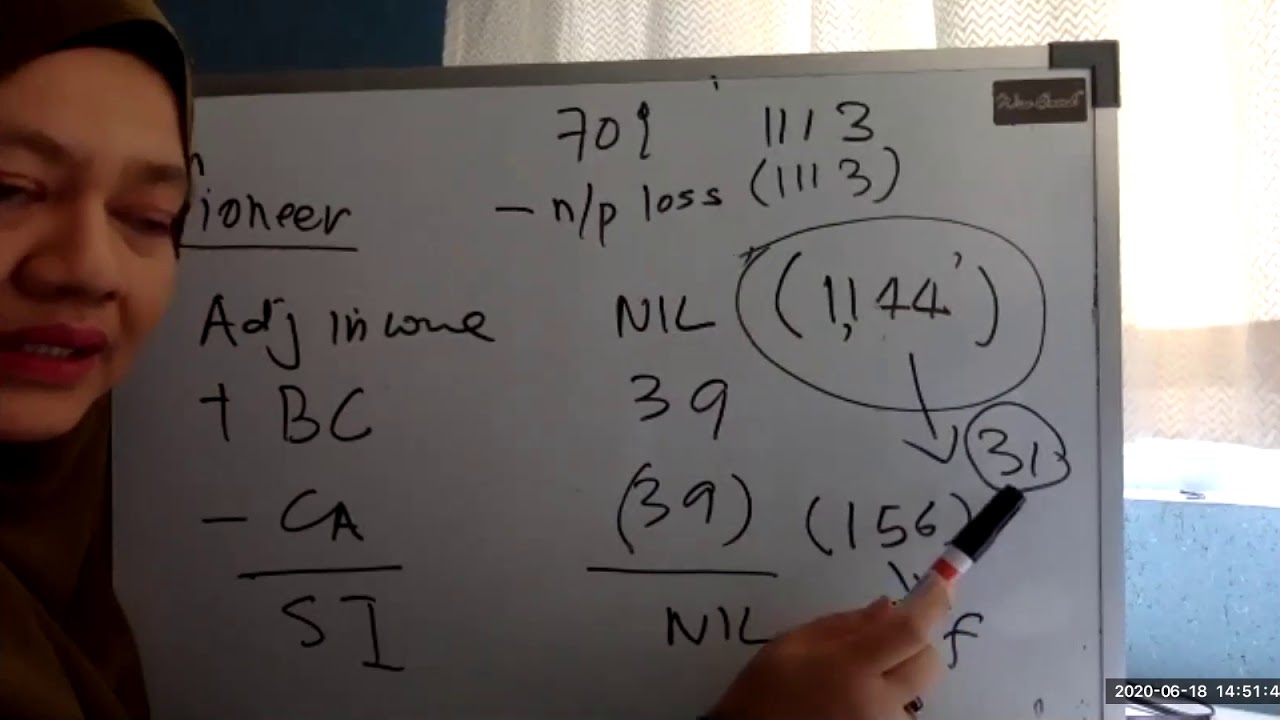 70% 1113
- n/p loss (1113)
ioneer
Adj income NIL (1,144')
+ BC 39
313
- CA (39) (156)
SI NIL f
2020-06-18 14:51:4